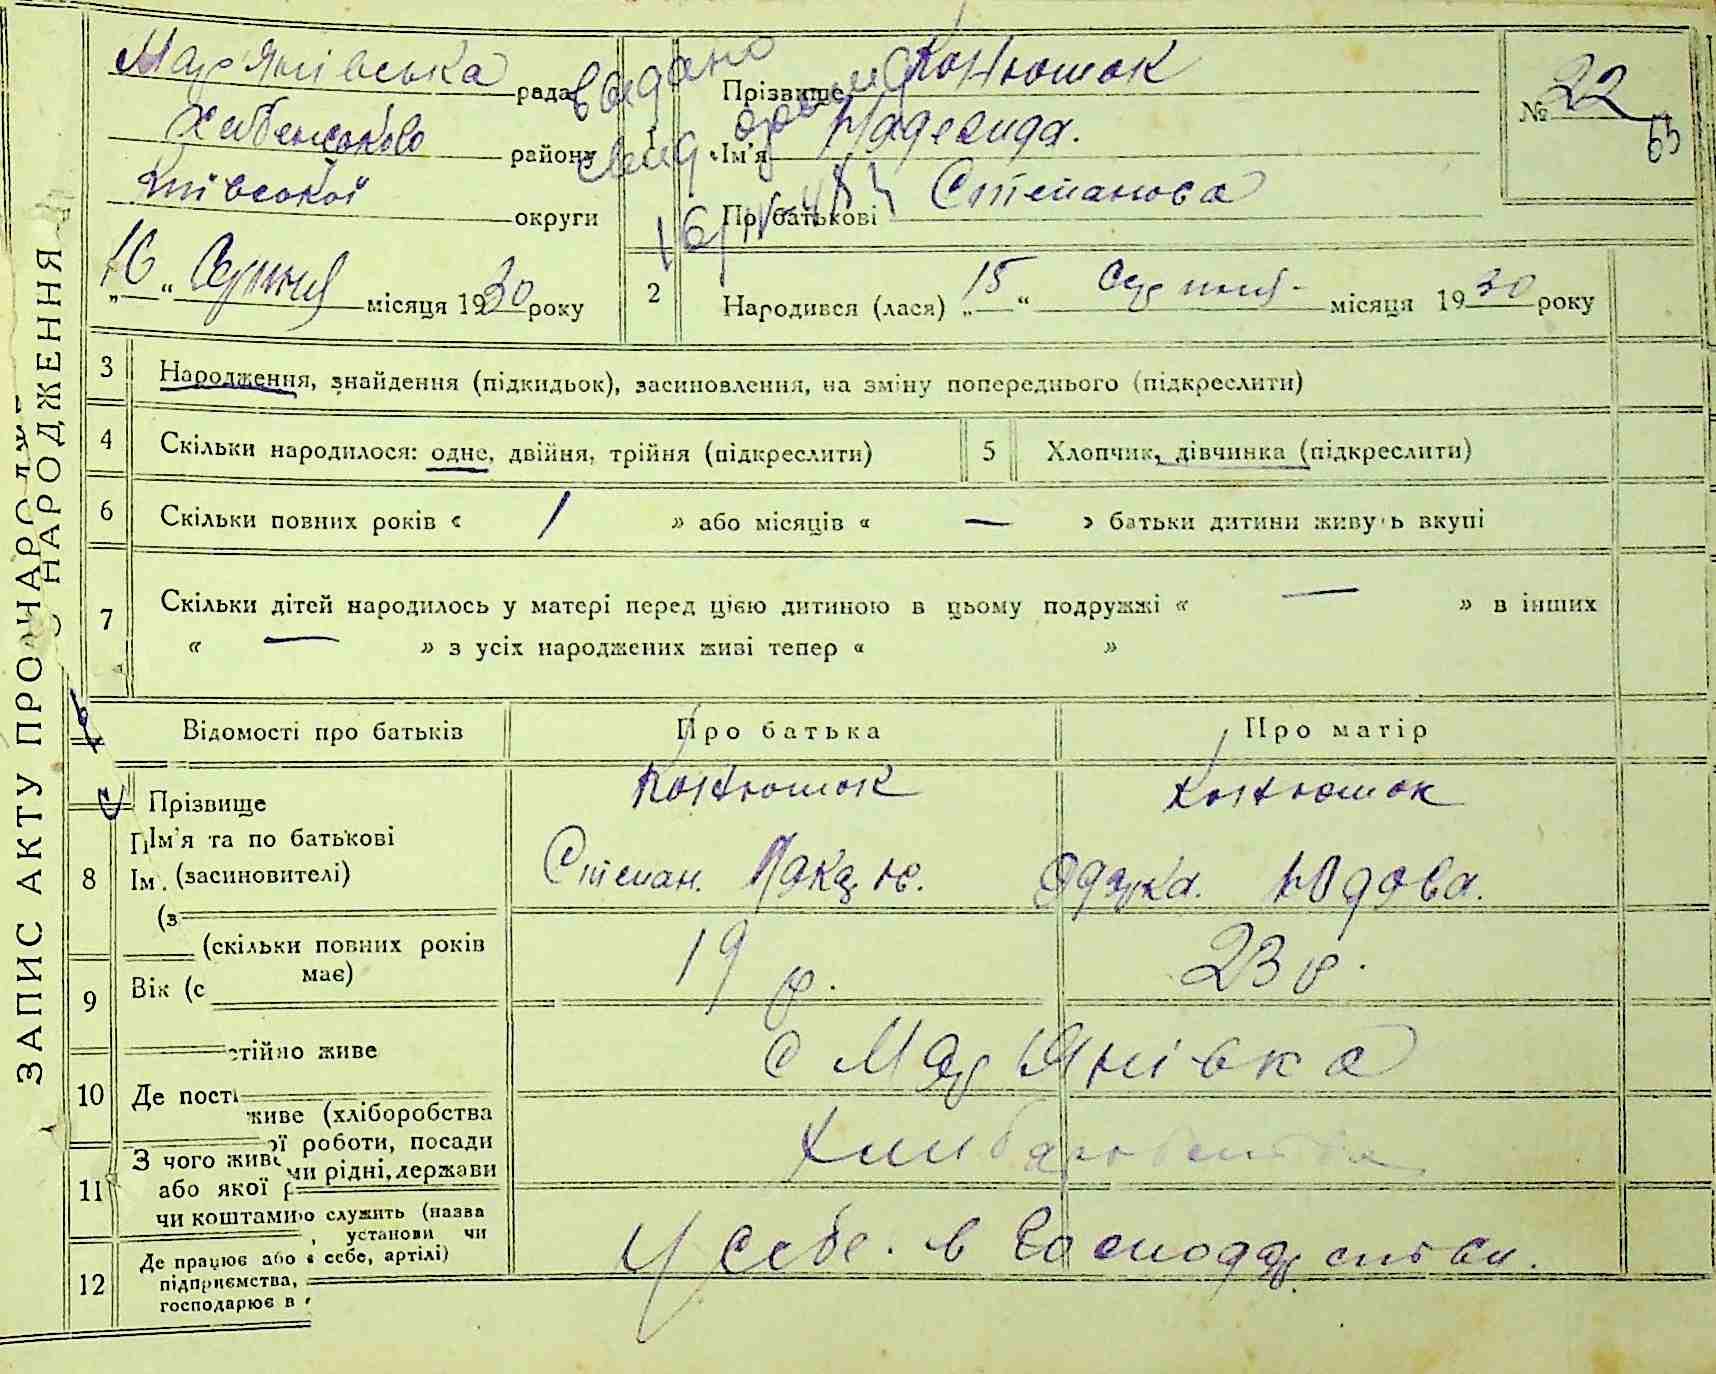 ЗАПИС АКТУ ПРО НАРОДЖЕННЯ
Мар'янівська рада
Хабенського району
Київської округи
16 " Серпня місяця 1930 року
видано
1 ПрізвищеКонюшок
Ім'я Надежида.
По батькові Степанова
№ 22
63
2 Народився (лася) „15“ Серпня місяця 1930 року
3 Народження, знайдення (підкидьок), засиновлення, на зміну попереднього (підкреслити)
4 Скільки народилося: одне, двійня, трійня (підкреслити)
5 Хлопчик, дівчинка (підкреслити)
6 Скільки повних років « 1 » або місяців « — » батьки дитини живуть вкупі
7 Скільки дітей народилось у матері перед цією дитиною в цьому подружжі « — » в інших
« — » з усіх народжених живі тепер « »
Відомості про батьків Про батька Про матір
8 Прізвище Конюшок Конюшок
Ім'я та по батькові
(засновителі) Степан. Одарка.
Ім.
(з
(скільки повних років
має)
9 Вік (с 19 р. 23 р.
стійно живе
10 Де пості с Мар'янівка
живе (хліборобства
ої роботи, посади
11 З чого живе ми рідні, держави
або якої р
чи коштами Хлиборобство
о служить (назва
, установи чи
12 Де працює або в себе, артілі)
підприємства,
господарює в У себе. в Господарстви.